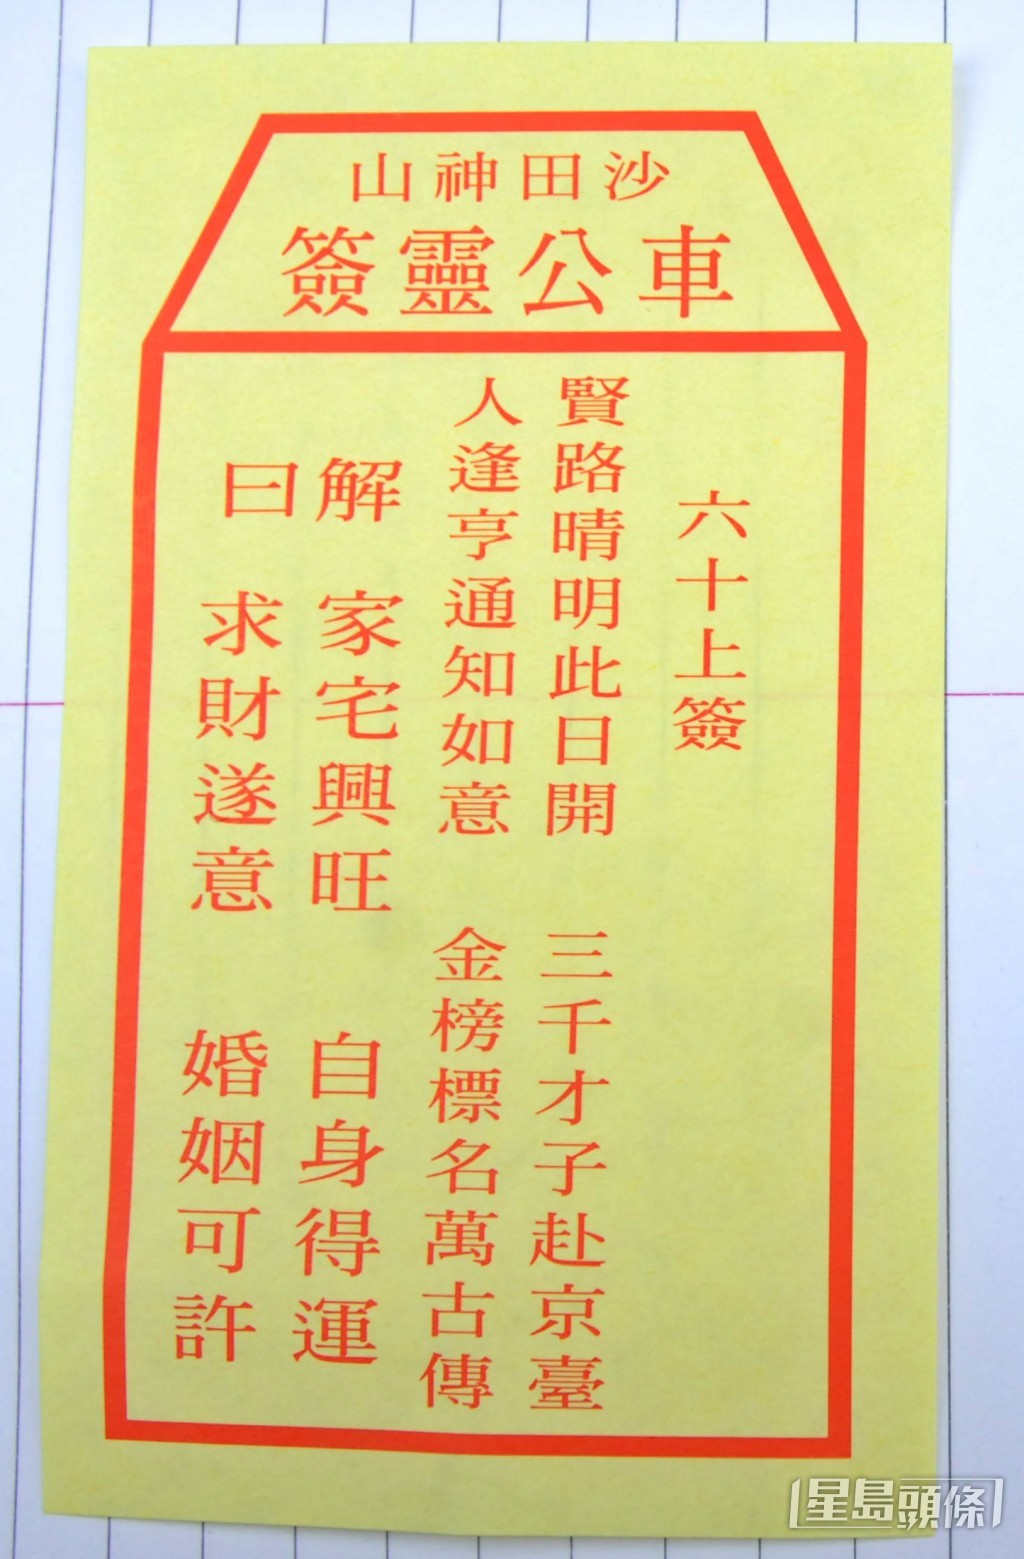 沙田神山
車公靈簽
六十上簽
賢路晴明此日開 三千才子赴京臺
人逢亨通知如意 金榜標名萬古傳
解 家宅興旺 自身得運
曰 求財遂意 婚姻可許
星島頭條